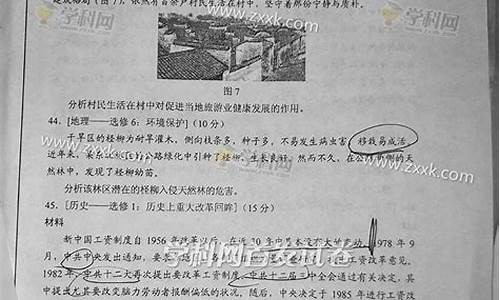 建成格局(图7),依然有百余户村民生活在村中,坚守着那份宁静与质朴。
图7
分析村民生活在村中对促进当地旅游业健康发展的作用。
44.[地理——选修6:环境保护](10分)
干旱区的柽柳为耐旱灌木,侧向枝条多,种子多,不易发生病虫害,移栽易成活。
近年来,某林区公路绿化中引种了柽柳,生长良好。然而不久,在公路两侧的天
然林中,发现了柽柳幼苗。
分析该林区潜在的柽柳入侵天然林的危害。
45.[历史——选修1:历史上重大改革回眸](15分)
材料
新中国工资制度自1956年改革以后,在近30年中基本没有大的变动。1978年9
月,中共中央发出通知,要
工资改革意见。
1982年,中共十二大再次提出要改革工资制度,中共十二届三中全会通过有关决定,其
中提出尤其要改变脑力劳动者报酬偏低的状况。随后,中央决定于1985年进行工资改
学科网 www.zxxk.com
www.zxxk.com
学科网
www.zxxk.com
学科网 www.zxxk.com
学科网首发试卷